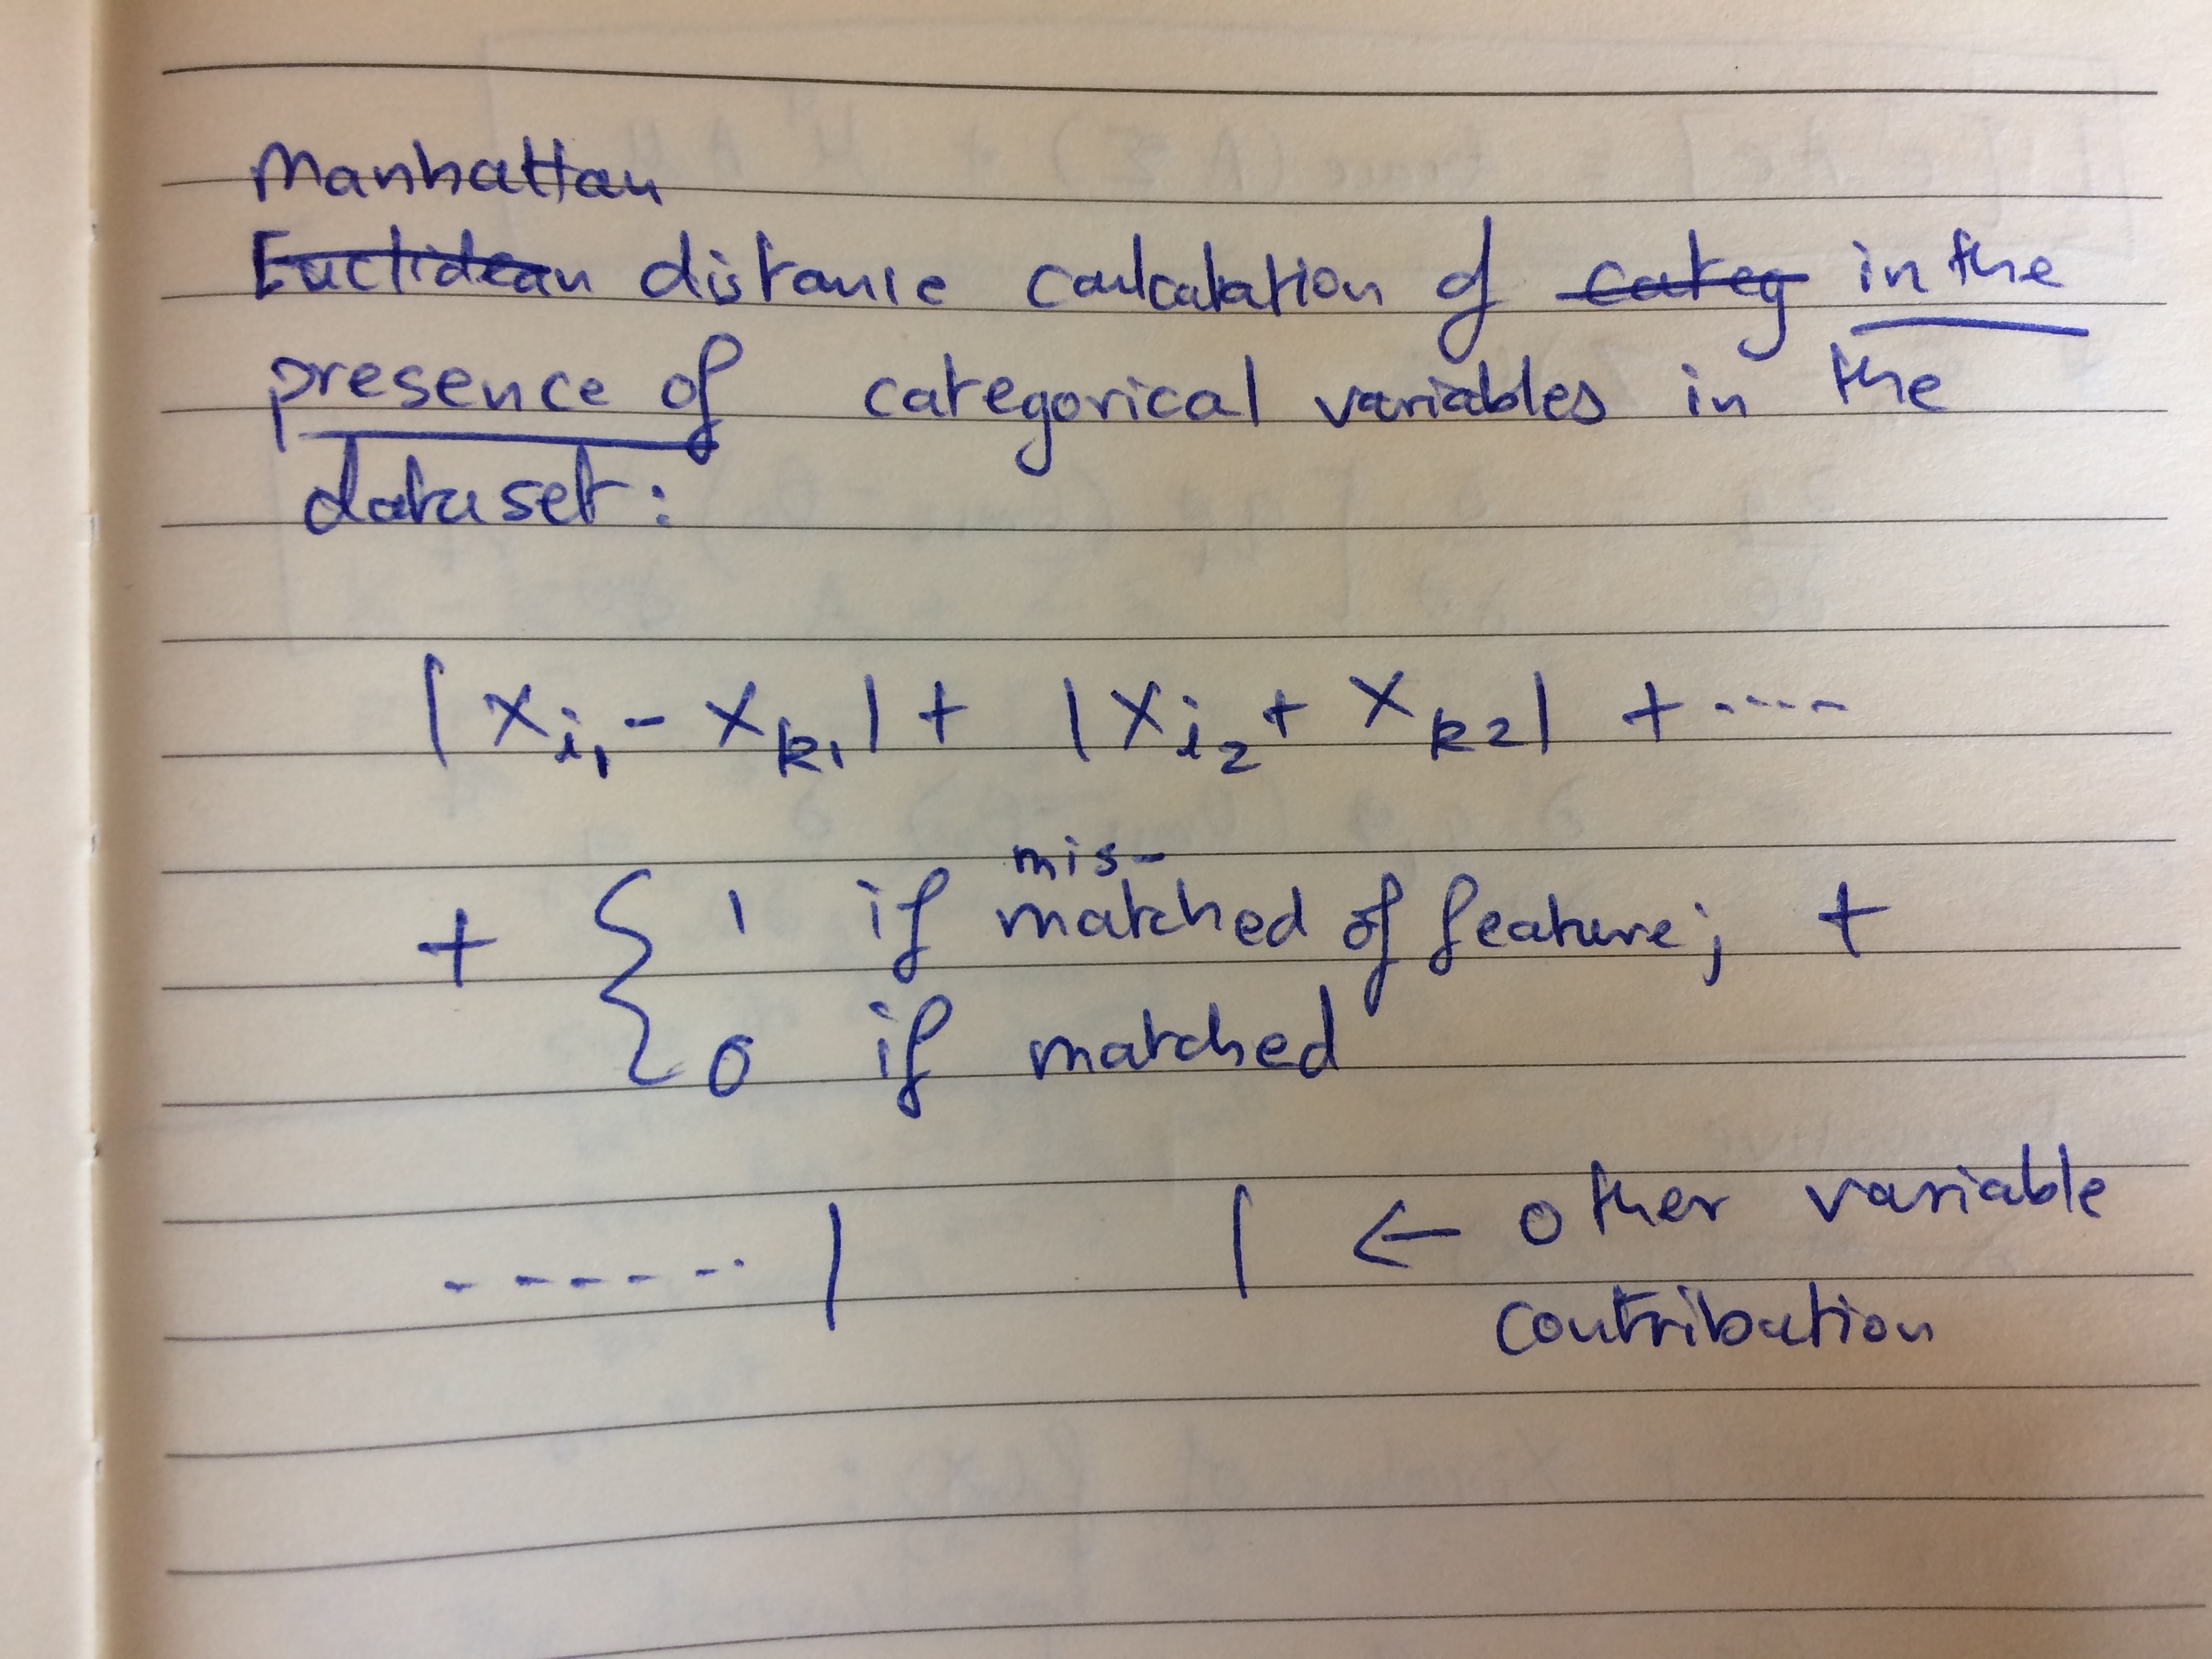 Manhattan
Euclidean distance calculation of categ in the
presence of categorical variables in the
dataset:
| x_{i1} - x_{k1} | + | x_{i2} + x_{k2} | + ----
mis-
+ { 1 if matched of feature; +
0 if matched
------- | | ← other variable
contribution